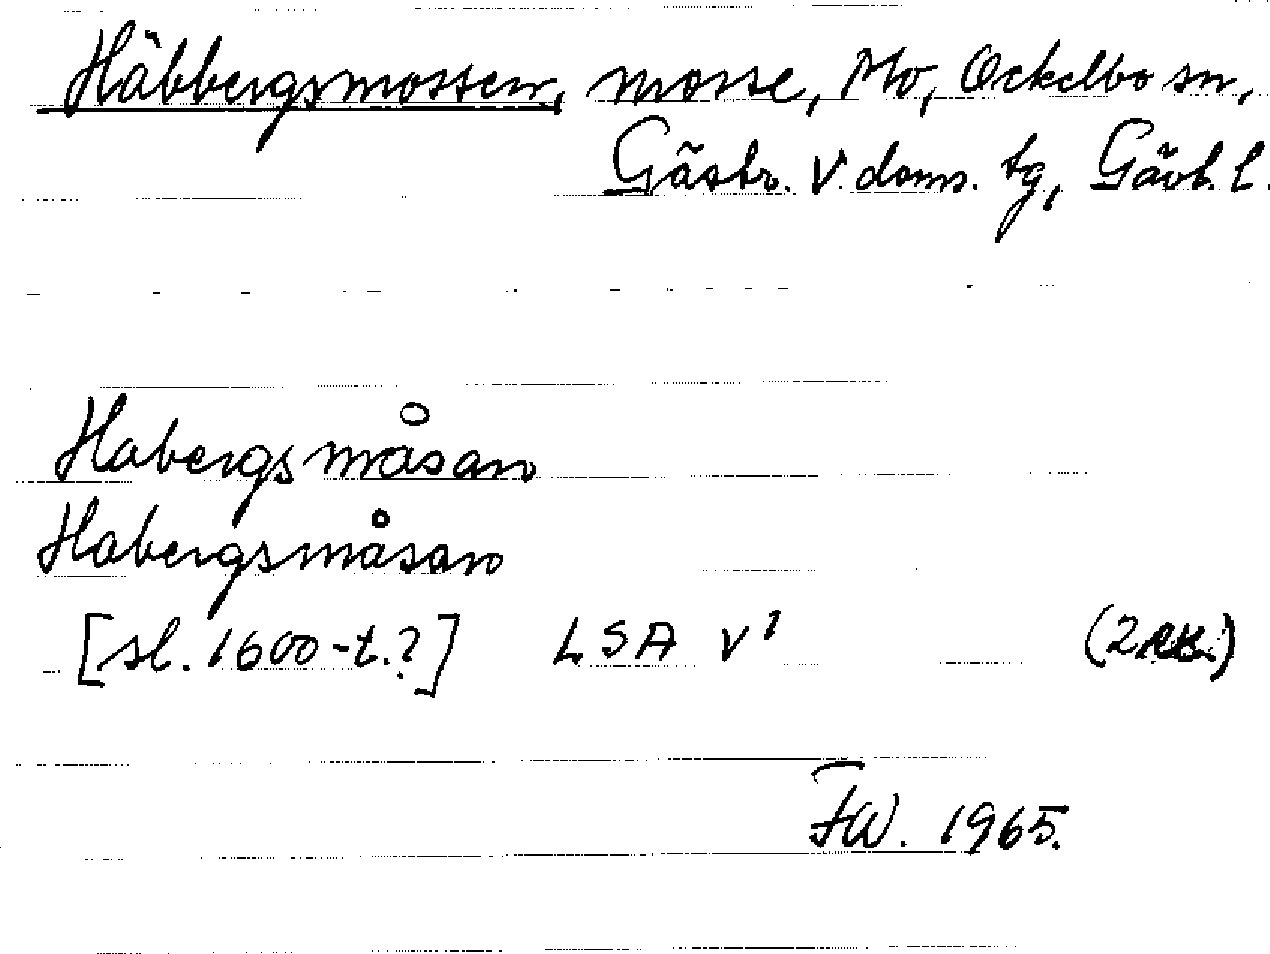 Häbbergsmossen, mosse, Mo, Ockelbo sn,
Gästr. V. doms. tg, Gävl. l.
Habergs måsan
Habergsmåsan
[sl. 1600-t.?] LSA V1 (2 ex.)
FW. 1965.